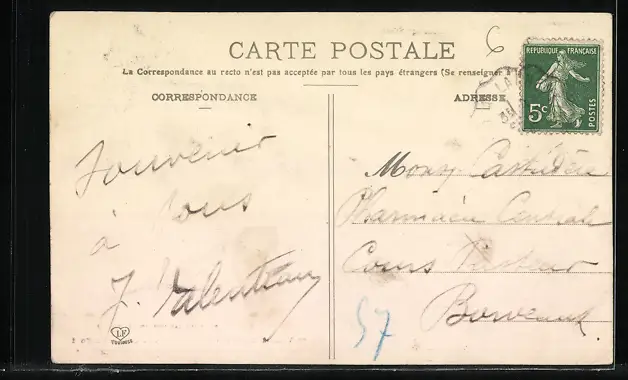 6
CARTE POSTALE
REPUBLIQUE FRANÇAISE
La Correspondance au recto n'est pas acceptée par tous les pays étrangers (Se renseigner à
CORRESPONDANCE
ADRESSE
5c
POSTES
Souvenir
à tous
J.
Pharmacie Centrale
Cours Pasteur
57
LF
Toulouse